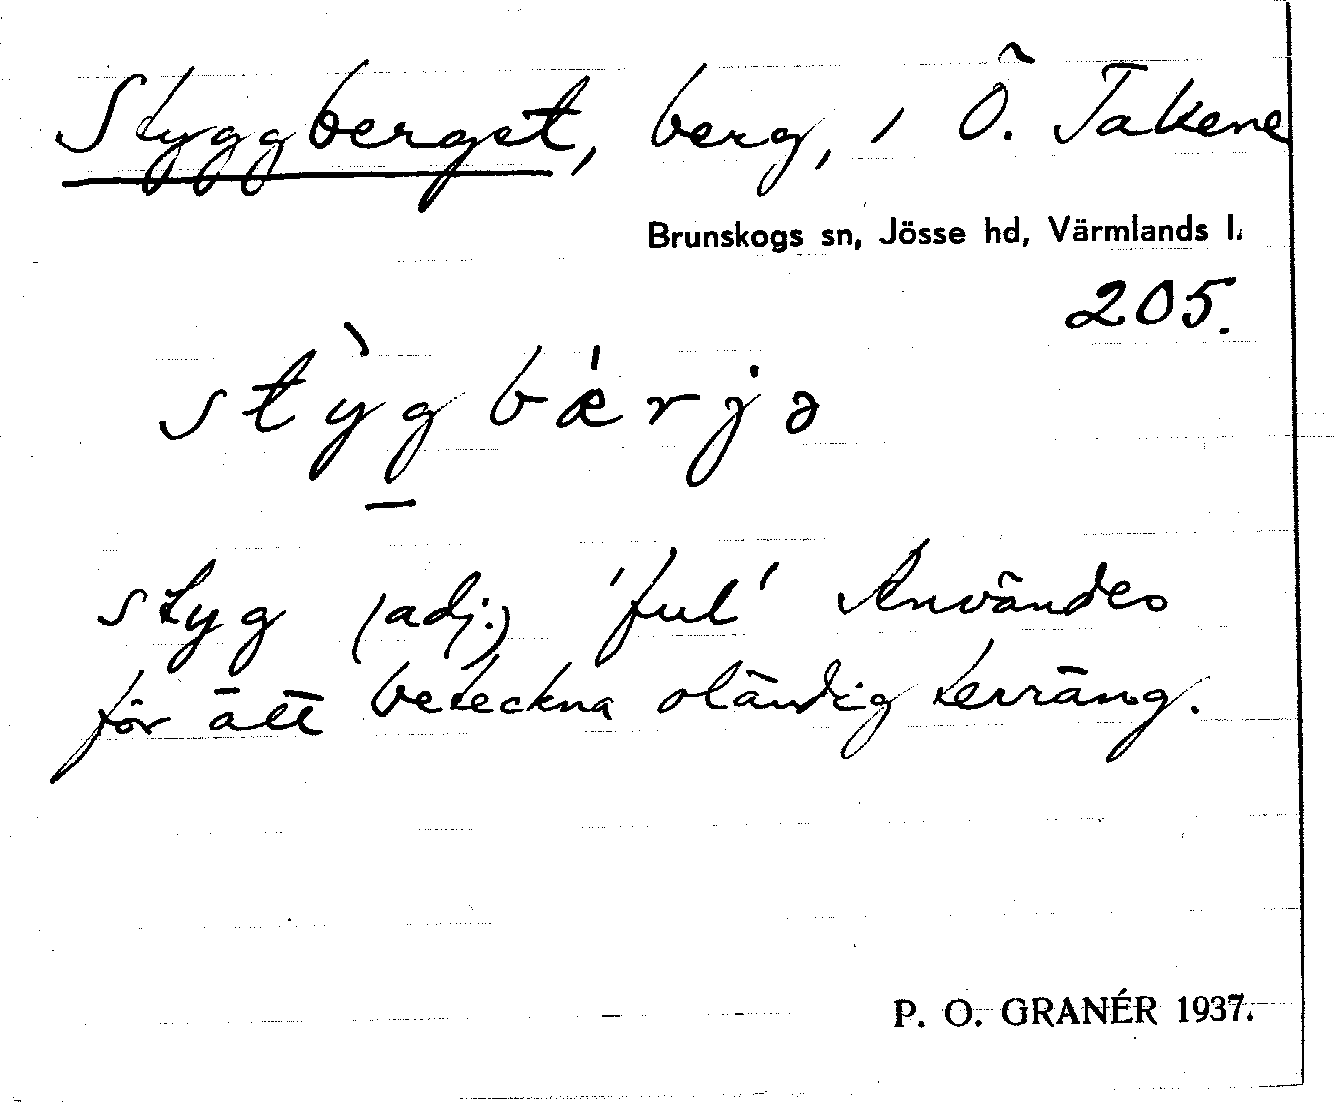 Styggberget, berg, i Ö. Takene
Brunskogs sn, Jösse hd, Värmlands l.
205.
st`ygbǽrjə
styg (adj.) 'ful' Användes
för att beteckna oländig terräng.
P. O. GRANÉR 1937.